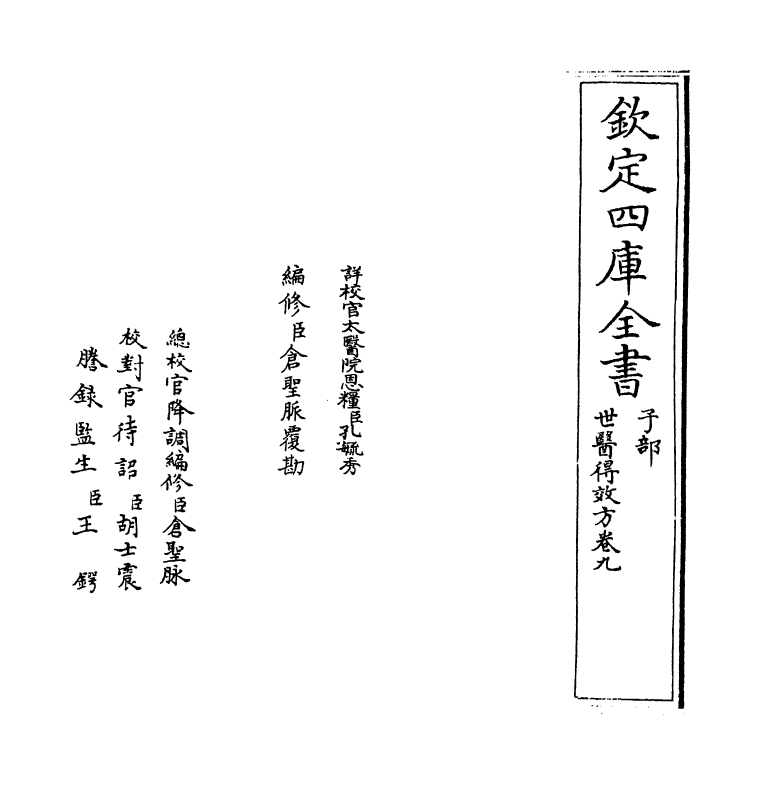 欽定四庫全書
子部
世醫得效方卷九
詳校官太醫院恩糧臣孔毓秀
編修臣倉聖脈覆勘
總校官降調編修臣倉聖脉
校對官待詔臣胡士震
謄錄監生臣王鍔